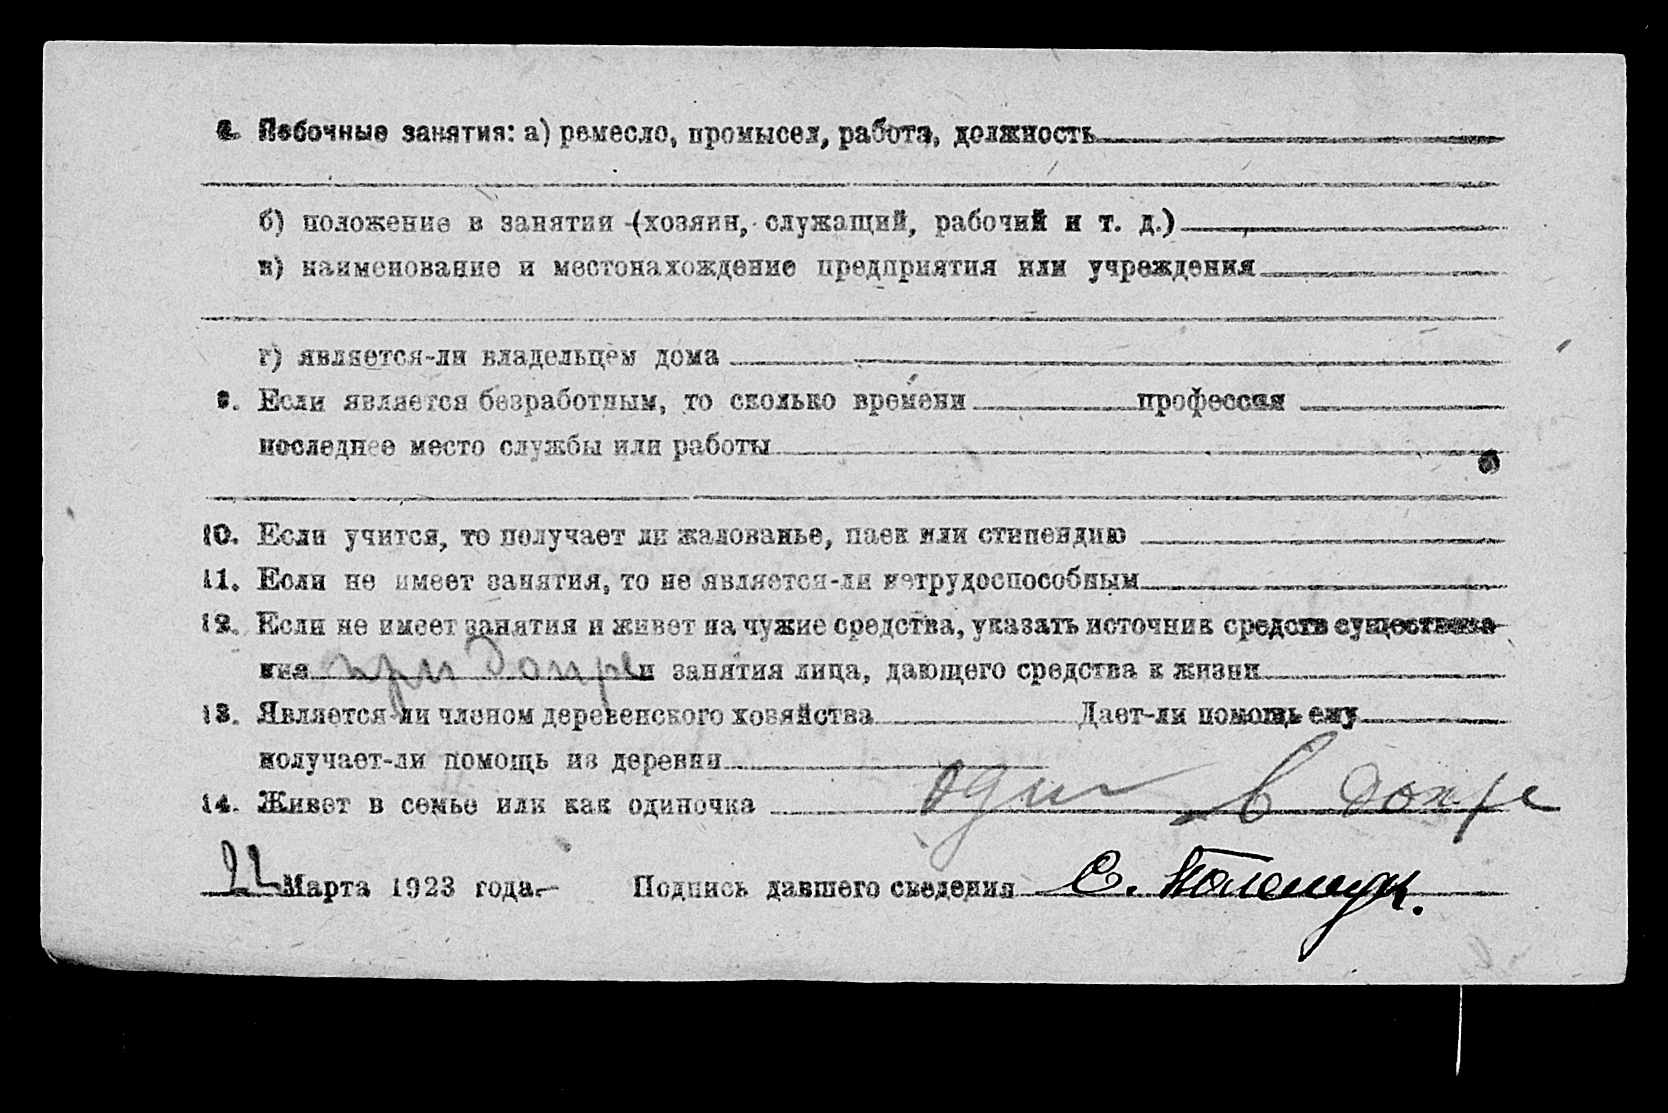 8. Побочные занятия: а) ремесло, промысел, работа, должность
б) положение в занятии (хозяин, служащий, рабочий и т. д.)
в) наименование и местонахождение предприятия или учреждения
г) является-ли владельцем дома
9. Если является безработным, то сколько времени профессия
последнее место службы или работы
10. Если учится, то получает ли жалованье, паек или стипендию
11. Если не имеет занятия, то не является-ли нетрудоспособным
12. Если не имеет занятия и живет на чужие средства, указать источник средств существова-
ния при допре и занятия лица, дающего средства к жизни
13. Является-ли членом деревенского хозяйства Дает-ли помощь ему
получает-ли помощь из деревни
14. Живет в семье или как одиночка один в допре
22 Марта 1923 года. Подпись давшего сведения С.